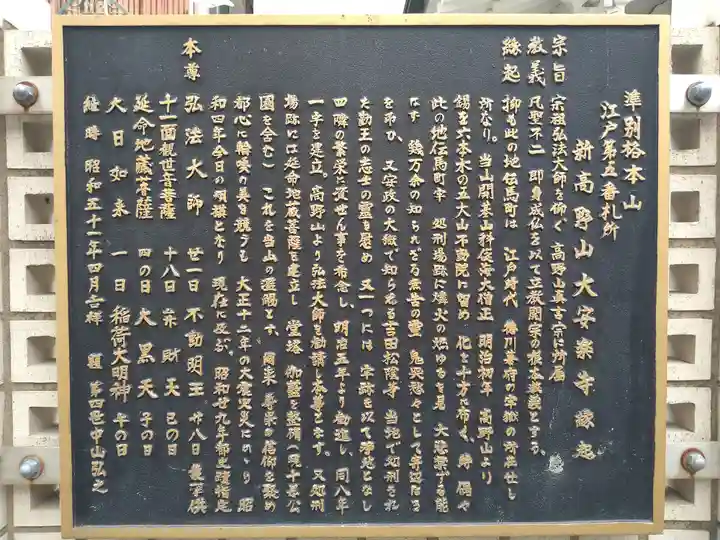 準別格本山
江戸第五番札所
新高野山大安楽寺縁起
宗旨 宗祖弘法大師を仰ぐ高野山真言宗に所属
教義 凡聖不二 即身成仏を以て立教開宗の根本教義とする。
縁起 抑も此の地伝馬町は 江戸時代 徳川幕府の牢獄の所在せし
所なり。当山開基山科俊海大僧正 明治初年 高野山より
錫を六本木の五大山不動院に留め 化を十方に布く、時 偶々
此の地伝馬町牢 処刑場跡に燐火の燃ゆるを見 大悲禁ずる能
なす 幾万余の知られざる無告の霊 鬼哭愁々として昇近たる
を弔ひ、又安政の大獄で知られる吉田松陰等 当地で処刑され
た勤王の志士の霊を慰め 又一つには 牢跡を以て浄地となし
四隣の繁栄に資せん事を希念し、明治五年より勧進し、同八年
一宇を建立。高野山より弘法大師を勧請し本尊となす。又処刑
場跡には延命地蔵菩薩を建立し 堂塔 伽藍を整備(現十思公
園を含む)これを当山の濫觴とす、爾来 尋崇の信仰を聚め
都心に輪奐の美を競うも 大正十二年の大震災にあり 昭
和四年今日の頑構となり 現在に及ぶ。昭和廿九年都史蹟指定
本尊 弘法大師 廿一日 不動明王 廿八日
十一面観世音菩薩 十八日 弁財天 巳の日
延命地蔵菩薩 四の日 大黒天 子の日
大日如来 一日 稲荷大明神 午の日
維時 昭和五十一年四月吉祥 第四世中山弘之